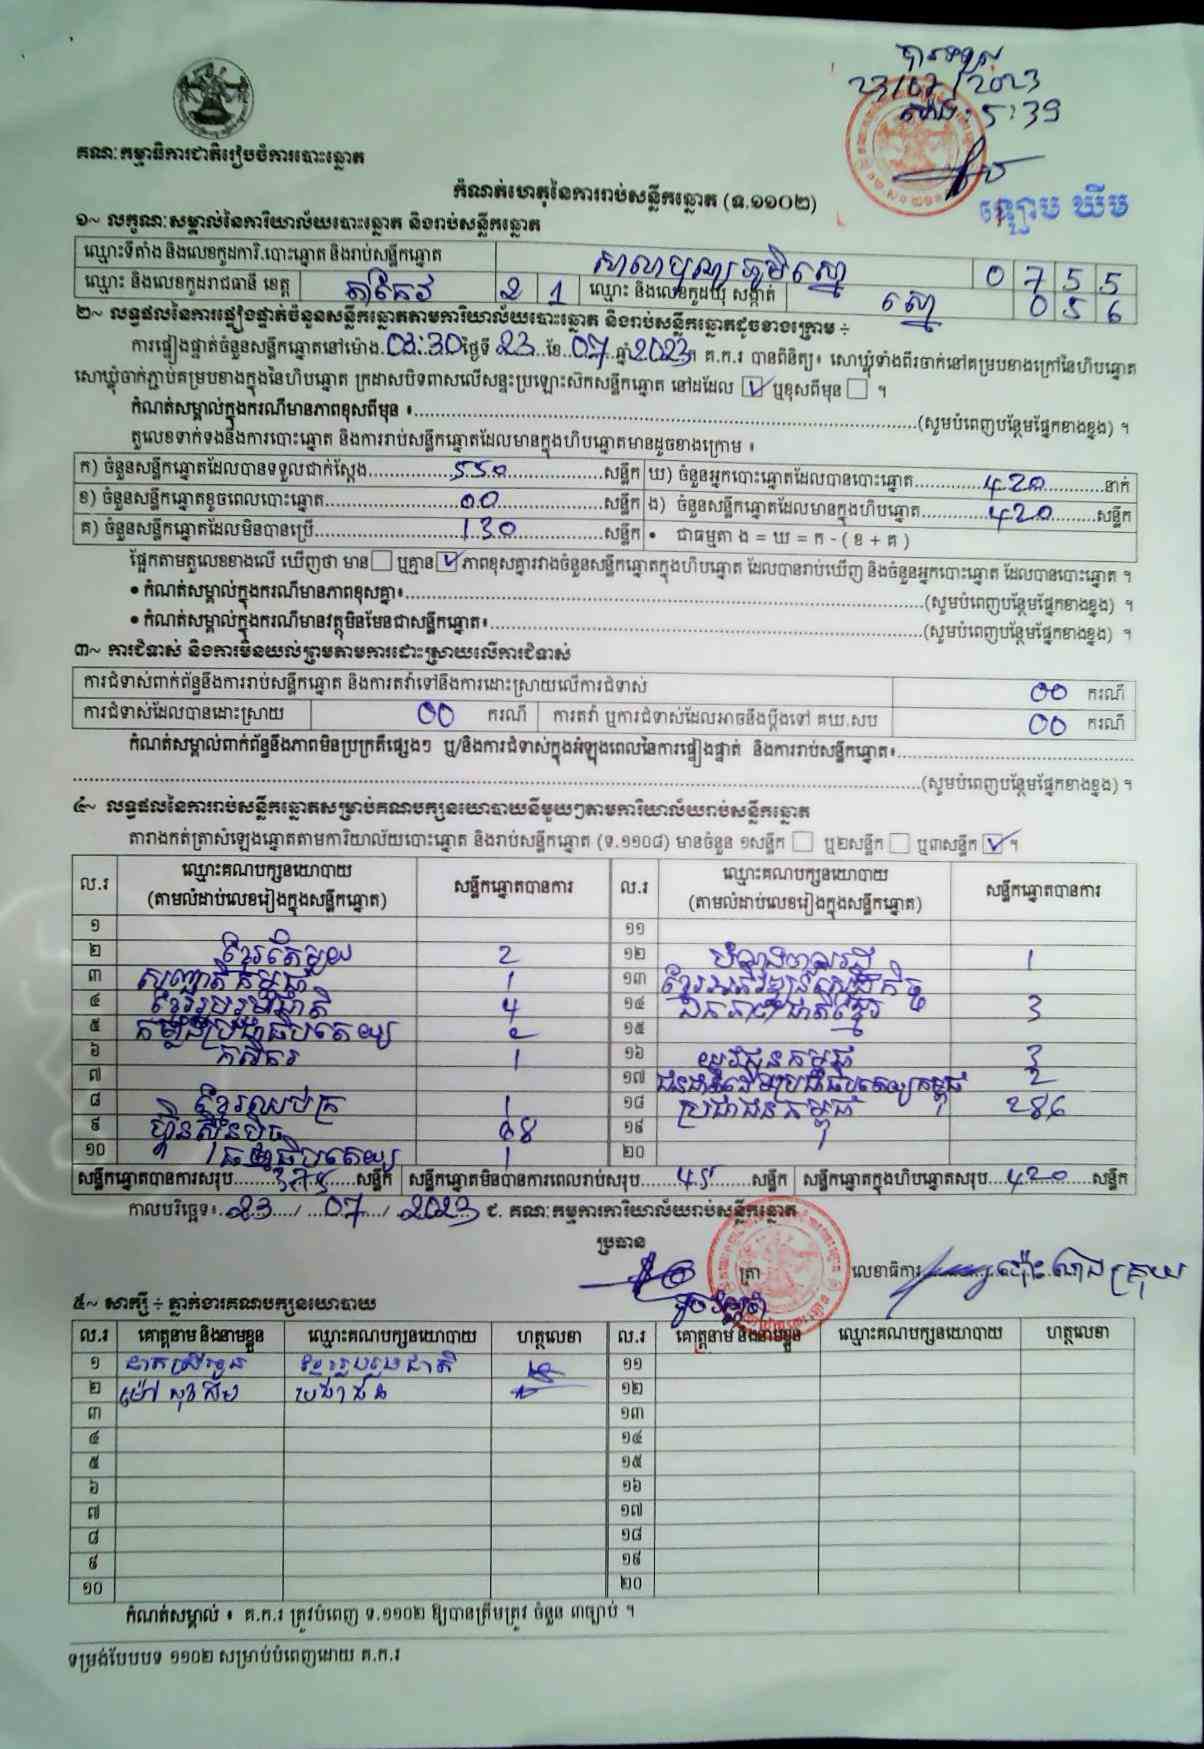 បានទទួល
23/07/2023
ម៉ោង 5:39
គណៈកម្មាធិការជាតិរៀបចំការបោះឆ្នោត
កំណត់ហេតុនៃការរាប់សន្លឹកឆ្នោត (ទ.១១០២)
១~ លក្ខណៈសម្គាល់នៃការិយាល័យបោះឆ្នោត និងរាប់សន្លឹកឆ្នោត
ឈ្មោះទីតាំង និងលេខកូដការិ.បោះឆ្នោត និងរាប់សន្លឹកឆ្នោត សាលាបុណ្យភូមិស្នោ 0 7 5 5
ឈ្មោះ និងលេខកូដរាជធានី ខេត្ត តាកែវ 2 1 ឈ្មោះ និងលេខកូដឃុំ សង្កាត់ 0 5 6
២~ លទ្ធផលនៃការផ្ទៀងផ្ទាត់ចំនួនសន្លឹកឆ្នោតតាមការិយាល័យបោះឆ្នោត និងរាប់សន្លឹកឆ្នោតដូចខាងក្រោម ÷
ការផ្ទៀងផ្ទាត់ចំនួនសន្លឹកឆ្នោតនៅម៉ោង 03:30 ថ្ងៃទី 23 ខែ 07 ឆ្នាំ 2023 គ.ក.រ បានពិនិត្យ៖ សោឃ្លុំទាំងពីរចាក់នៅគម្របខាងក្រៅនៃហិបឆ្នោត
សោឃ្លុំចាក់ភ្ជាប់គម្របខាងក្នុងនៃហិបឆ្នោត ក្រដាសបិទពាសលើសន្ទះប្រឡោះស៊កសន្លឹកឆ្នោត នៅដដែល ☑ ឬខុសពីមុន ☐ ។
កំណត់សម្គាល់ក្នុងករណីមានភាពខុសពីមុន ៖ (សូមបំពេញបន្ថែមផ្នែកខាងខ្នង) ។
តួលេខទាក់ទងនឹងការបោះឆ្នោត និងការរាប់សន្លឹកឆ្នោតដែលមានក្នុងហិបឆ្នោតមានដូចខាងក្រោម ៖
ក) ចំនួនសន្លឹកឆ្នោតដែលបានទទួលជាក់ស្តែង 550 សន្លឹក ឃ) ចំនួនអ្នកបោះឆ្នោតដែលបានបោះឆ្នោត 420 នាក់
ខ) ចំនួនសន្លឹកឆ្នោតខូចពេលបោះឆ្នោត 00 សន្លឹក ង) ចំនួនសន្លឹកឆ្នោតដែលមានក្នុងហិបឆ្នោត 420 សន្លឹក
គ) ចំនួនសន្លឹកឆ្នោតដែលមិនបានប្រើ 130 សន្លឹក • ជាធម្មតា ង = ឃ = ក - ( ខ + គ )
ផ្អែកតាមតួលេខខាងលើ ឃើញថា មាន ☐ ឬគ្មាន ☑ ភាពខុសគ្នារវាងចំនួនសន្លឹកឆ្នោតក្នុងហិបឆ្នោត ដែលបានរាប់ឃើញ និងចំនួនអ្នកបោះឆ្នោត ដែលបានបោះឆ្នោត ។
• កំណត់សម្គាល់ក្នុងករណីមានភាពខុសគ្នា៖ (សូមបំពេញបន្ថែមផ្នែកខាងខ្នង) ។
• កំណត់សម្គាល់ក្នុងករណីមានវត្ថុមិនមែនជាសន្លឹកឆ្នោត៖ (សូមបំពេញបន្ថែមផ្នែកខាងខ្នង) ។
៣~ ការជំទាស់ និងការមិនយល់ព្រមតាមការដោះស្រាយលើការជំទាស់
ការជំទាស់ពាក់ព័ន្ធនឹងការរាប់សន្លឹកឆ្នោត និងការតវ៉ាទៅនឹងការដោះស្រាយលើការជំទាស់ 00 ករណី
ការជំទាស់ដែលបានដោះស្រាយ 00 ករណី ការតវ៉ា ឬការជំទាស់ដែលអាចនឹងប្តឹងទៅ គឃ.សប 00 ករណី
កំណត់សម្គាល់ពាក់ព័ន្ធនឹងភាពមិនប្រក្រតីផ្សេងៗ ឬ/និងការជំទាស់ក្នុងអំឡុងពេលនៃការផ្ទៀងផ្ទាត់ និងការរាប់សន្លឹកឆ្នោត៖
(សូមបំពេញបន្ថែមផ្នែកខាងខ្នង) ។
៤~ លទ្ធផលនៃការរាប់សន្លឹកឆ្នោតសម្រាប់គណបក្សនយោបាយនីមួយៗតាមការិយាល័យរាប់សន្លឹកឆ្នោត
តារាងកត់ត្រាសំឡេងឆ្នោតតាមការិយាល័យបោះឆ្នោត និងរាប់សន្លឹកឆ្នោត (ទ.១១០៨) មានចំនួន ១សន្លឹក ☐ ឬ២សន្លឹក ☐ ឬ៣សន្លឹក ☑ ។
ល.រ ឈ្មោះគណបក្សនយោបាយ (តាមលំដាប់លេខរៀងក្នុងសន្លឹកឆ្នោត) សន្លឹកឆ្នោតបានការ ល.រ ឈ្មោះគណបក្សនយោបាយ (តាមលំដាប់លេខរៀងក្នុងសន្លឹកឆ្នោត) សន្លឹកឆ្នោតបានការ
១ ១១
២ ខ្មែរតែមួយ 2 ១២ 1
៣ សញ្ជាតិកម្ពុជា 1 ១៣ ខ្មែរអភិវឌ្ឍន៍សេដ្ឋកិច្ច
៤ ខ្មែររួបរួមជាតិ 4 ១៤ ឯកភាពជាតិខ្មែរ 3
៥ កម្លាំងប្រជាធិបតេយ្យ ១៥
៦ កសិករ 1 ១៦ យុវជនកម្ពុជា 3
៧ ១៧ ជនជាតិដើមប្រជាធិបតេយ្យកម្ពុជា 2
៨ ខ្មែរឈប់ក្រ 1 ១៨ ប្រជាជនកម្ពុជា 286
៩ ហ្វ៊ុនស៊ិនប៉ិច ១៩
១០ ធម្មាធិបតេយ្យ 1 ២០
សន្លឹកឆ្នោតបានការសរុប 375 សន្លឹក សន្លឹកឆ្នោតមិនបានការពេលរាប់សរុប 45 សន្លឹក សន្លឹកឆ្នោតក្នុងហិបឆ្នោតសរុប 420 សន្លឹក
កាលបរិច្ឆេទ៖ 23 / 07 / 2023 ជ. គណៈកម្មការការិយាល័យរាប់សន្លឹកឆ្នោត
ប្រធាន
ត្រា លេខាធិការ
៥~ សាក្សី ÷ ភ្នាក់ងារគណបក្សនយោបាយ
ល.រ គោត្តនាម និងនាមខ្លួន ឈ្មោះគណបក្សនយោបាយ ហត្ថលេខា ល.រ គោត្តនាម និងនាមខ្លួន ឈ្មោះគណបក្សនយោបាយ ហត្ថលេខា
១ ខ្មែររួបរួមជាតិ ១១
២ ប្រជាជន ១២
៣ ១៣
៤ ១៤
៥ ១៥
៦ ១៦
៧ ១៧
៨ ១៨
៩ ១៩
១០ ២០
កំណត់សម្គាល់ ៖ គ.ក.រ ត្រូវបំពេញ ទ.១១០២ ឱ្យបានត្រឹមត្រូវ ចំនួន ៣ច្បាប់ ។
ទម្រង់បែបបទ ១១០២ សម្រាប់បំពេញដោយ គ.ក.រ